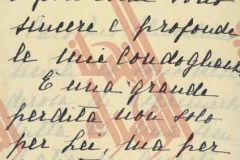 sincere e profonde
le mie condoglianze
È una grande
perdita non solo
per Lei, ma per